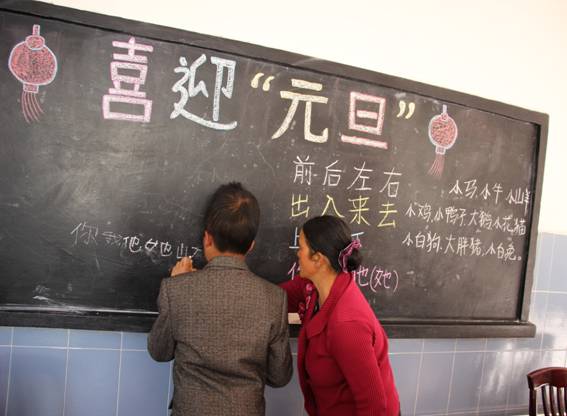 喜迎“元旦”
前后左右
出入来去
上
他(她)
小马、小牛、小山羊
小鸡、小鸭子、大鹅、小花猫
小白狗、大胖猪、小白兔。
你 我 他 她 也 山